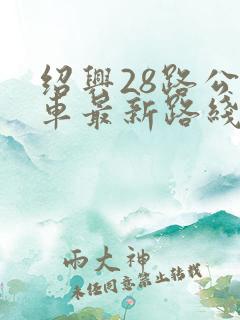 绍興28路公
車最新路綫
雨大神
未经同意禁止转载